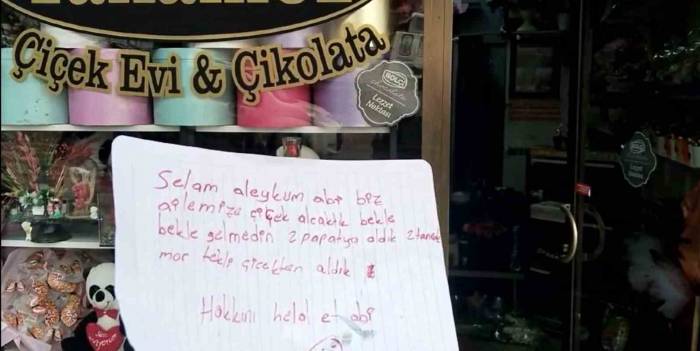 Çiçek Evi & Çikolata
BOLÇİ
Lezzet
Noktası
Selam aleykum abi biz
ailemize çiçek alcaktık bekle
bekle gelmedin 2 papatya aldık 2 tane
mor tekli çicekten aldık
Hakkını helal et abi